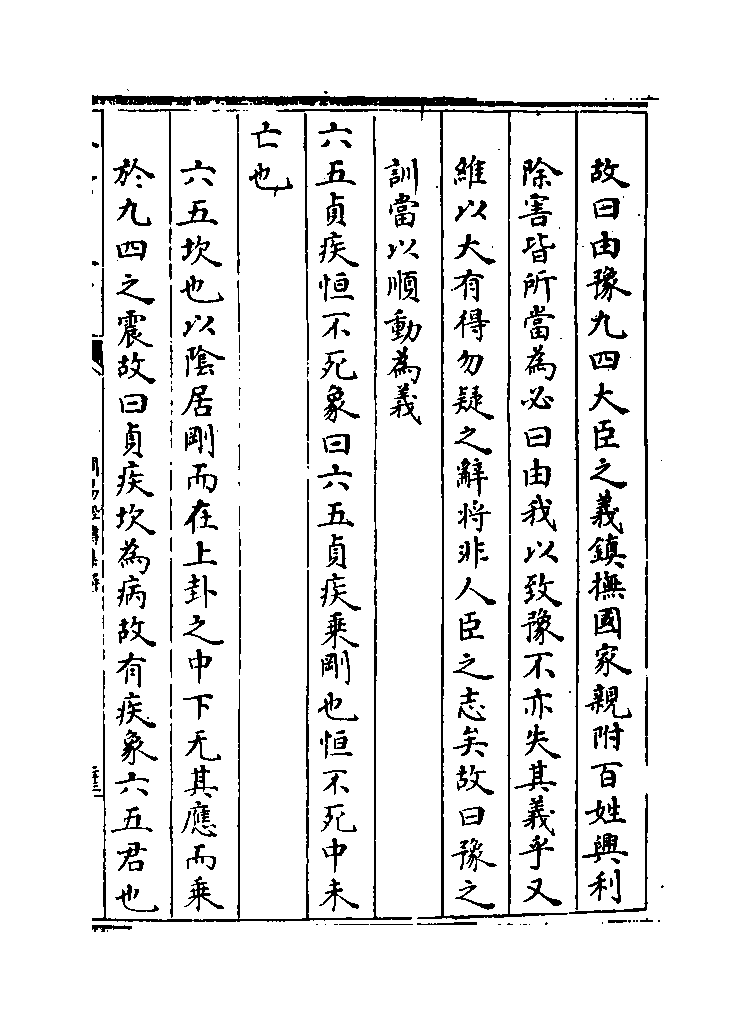 故曰由豫九四大臣之義鎮撫國家親附百姓興利
除害皆所當為必曰由我以致豫不亦失其義乎又
維以大有得勿疑之辭將非人臣之志矣故曰豫之
訓當以順動為義
六五貞疾恒不死象曰六五貞疾乘剛也恒不死中未
亡也
六五坎也以陰居剛而在上卦之中下无其應而乘
於九四之震故曰貞疾坎為病故有疾象六五君也